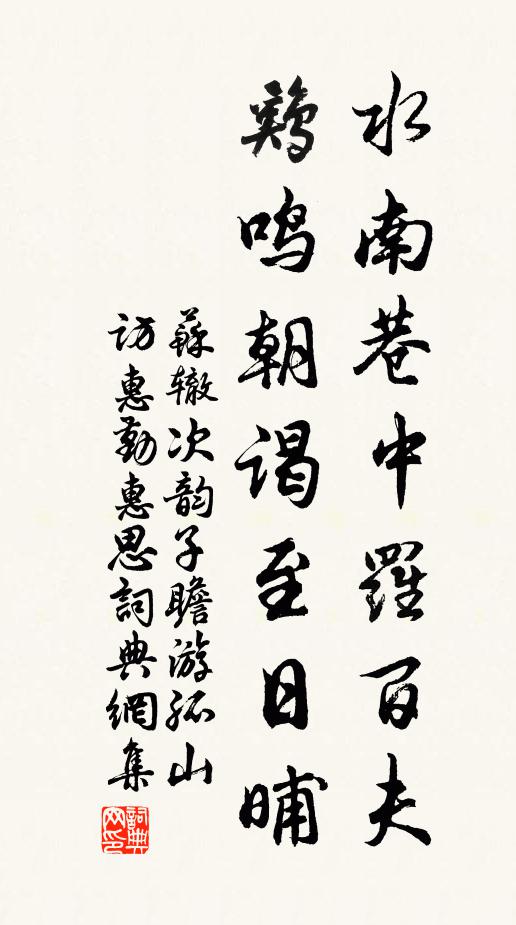 水南巷中羅百夫
鷄鳴朝谒至日晡
蘇辙次韵子瞻游孤山
访惠勤惠思詞典網集
詞典网印